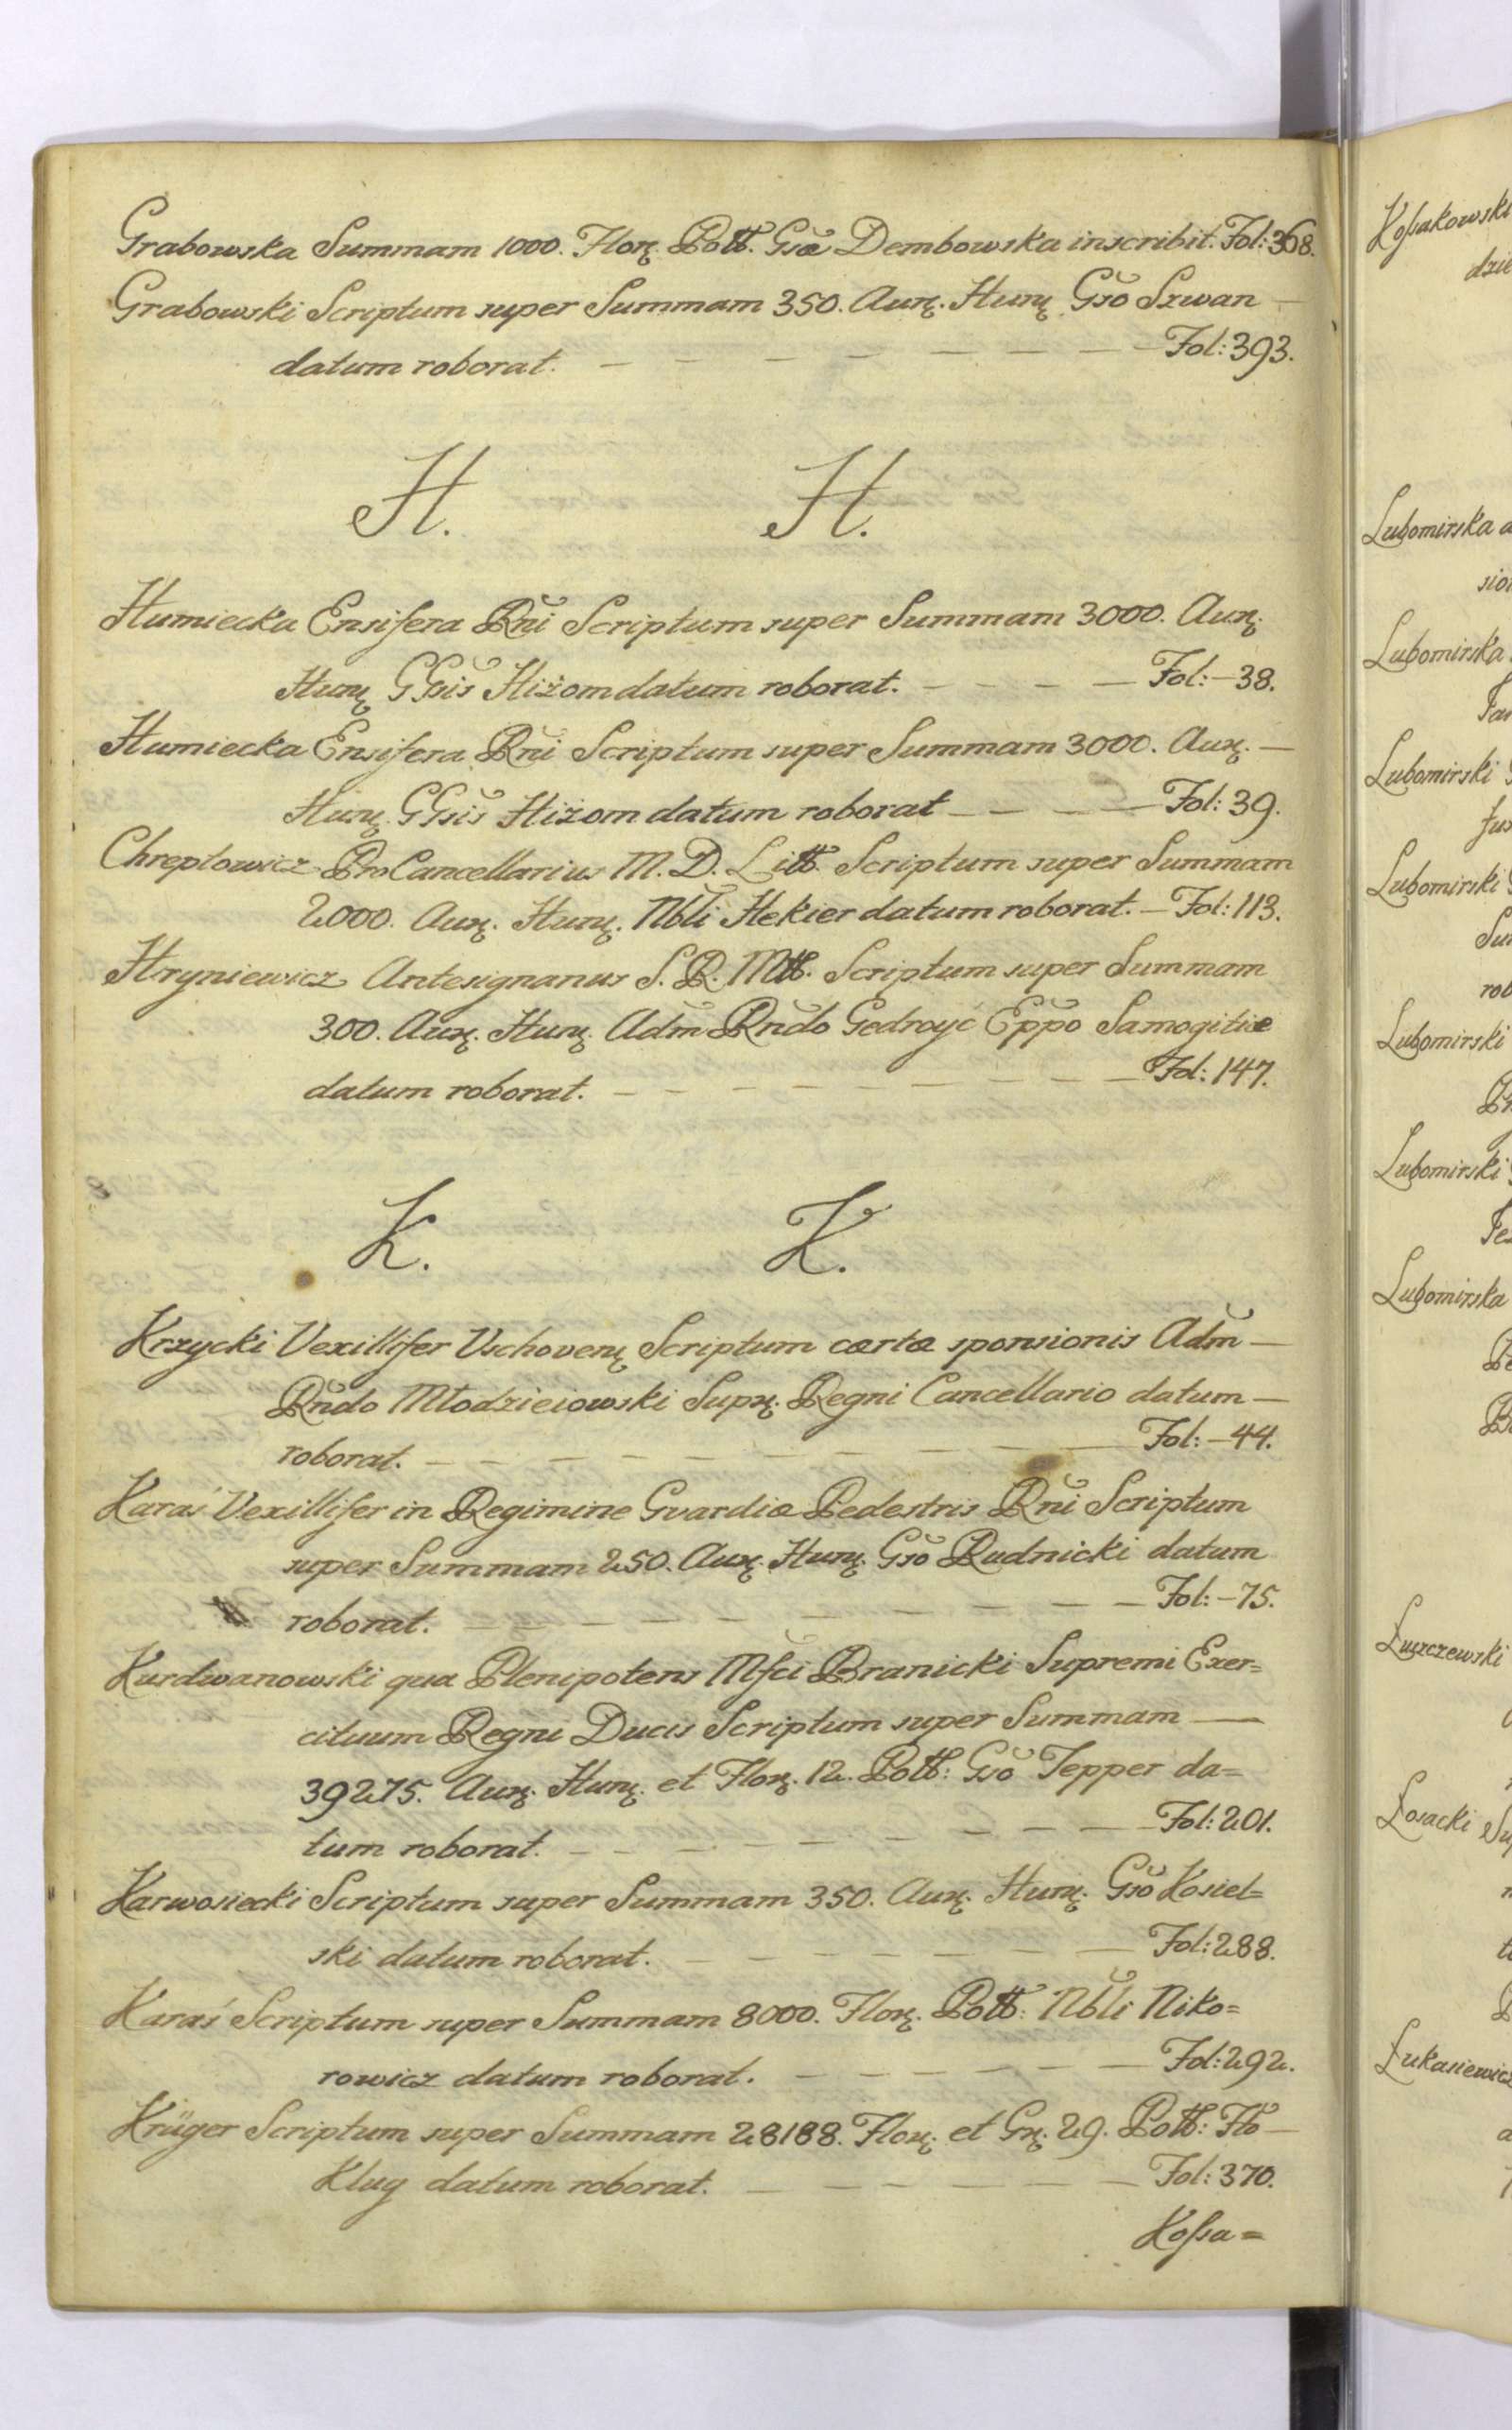 Grabowska Summam 1000. Flor. Poll. Gsæ Dembowska inscribit. Fol: 368.
Grabowski Scriptum super Summam 350. Aur. Hung. Gso Szwan
datum roborat. — — — — — — — Fol: 393.
H. H.
Humiecka Ensifera Rni Scriptum super Summam 3000. Aur.
Hung. GGsis Hiżom datum roborat. — — — — Fol: — 38.
Humiecka Ensifera Rni Scriptum super Summam 3000. Aur. —
Hung. GGsis Hiżom datum roborat — — — — Fol: 39.
Chreptowicz ProCancellarius M. D. Litt. Scriptum super Summam
2000. Aur. Hung. Nbli Hekier datum roborat. — Fol: 113.
Hryniewicz Antesignanus S. R. Mtt. Scriptum super Summam
300. Aur. Hung. Adm Rndo Gedroyć Eppo Samogitiæ
datum roborat. — — — — — — — Fol: 147.
K. K.
Krzycki Vexillifer Vschoven. Scriptum cartæ sponsionis Adm —
Rndo Młodzieiowski Supr. Regni Cancellario datum —
roborat. — — — — — — — Fol: — 44.
Karaś Vexillifer in Regimine Gvardiæ Pedestris Rni Scriptum
super Summam 250. Aur. Hung. Gso Rudnicki datum
roborat. — — — — — — — Fol: — 75.
Kurdwanowski qua Plenipotens Mfci Branicki Supremi Exer=
cituum Regni Ducis Scriptum super Summam —
39275. Aur. Hung. et Flor. 12. Poll: Gso Tepper da=
tum roborat. — — — — — — — Fol: 201.
Karwosiecki Scriptum super Summam 350. Aur. Hung. Gso Kosiel=
ski datum roborat. — — — — — — Fol: 288.
Karaś Scriptum super Summam 8000. Flor. Poll: Nbli Niko=
rowicz datum roborat. — — — — — Fol: 292.
Krüger Scriptum super Summam 28188. Flor. et Gr. 29. Poll: Hto —
Klug datum roborat. — — — — — Fol: 370.
Kossa=
Kossakowski
dzie
Lubomirska a
sion
Lubomirska
Lubomirski
Lubomirski
rob
Lubomirski
Lubomirski
Lubomirska
Łuszczewski
Łosacki
Łukasiewicz